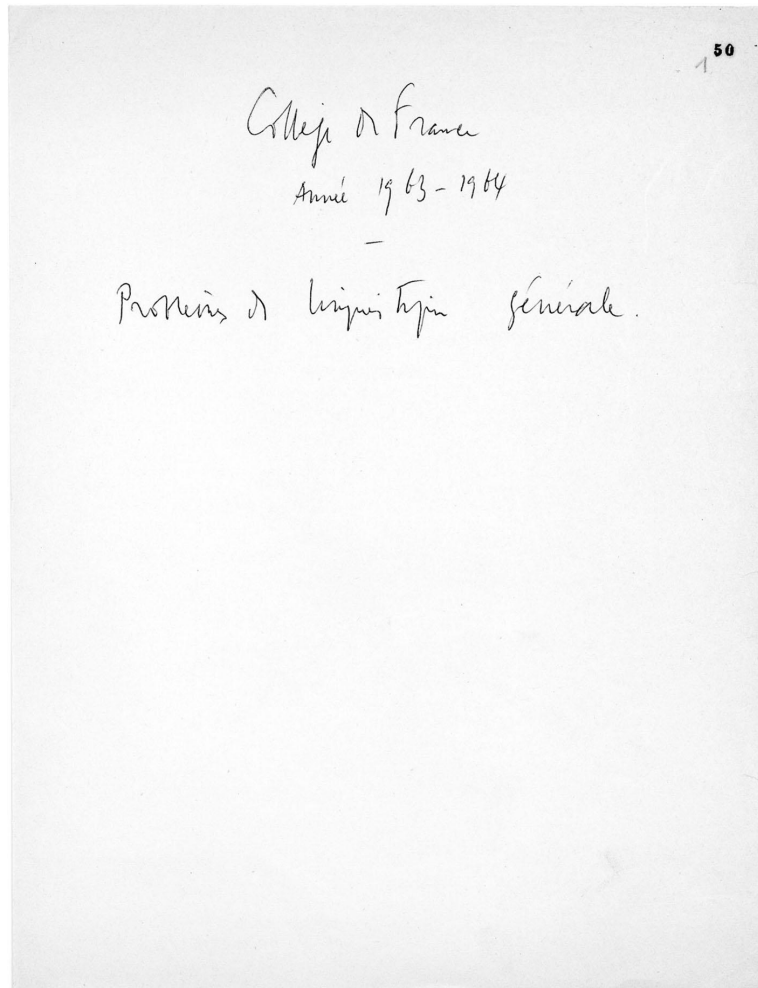 50
1
Collège de France
Année 1963-1964
—
Problèmes de linguistique générale.